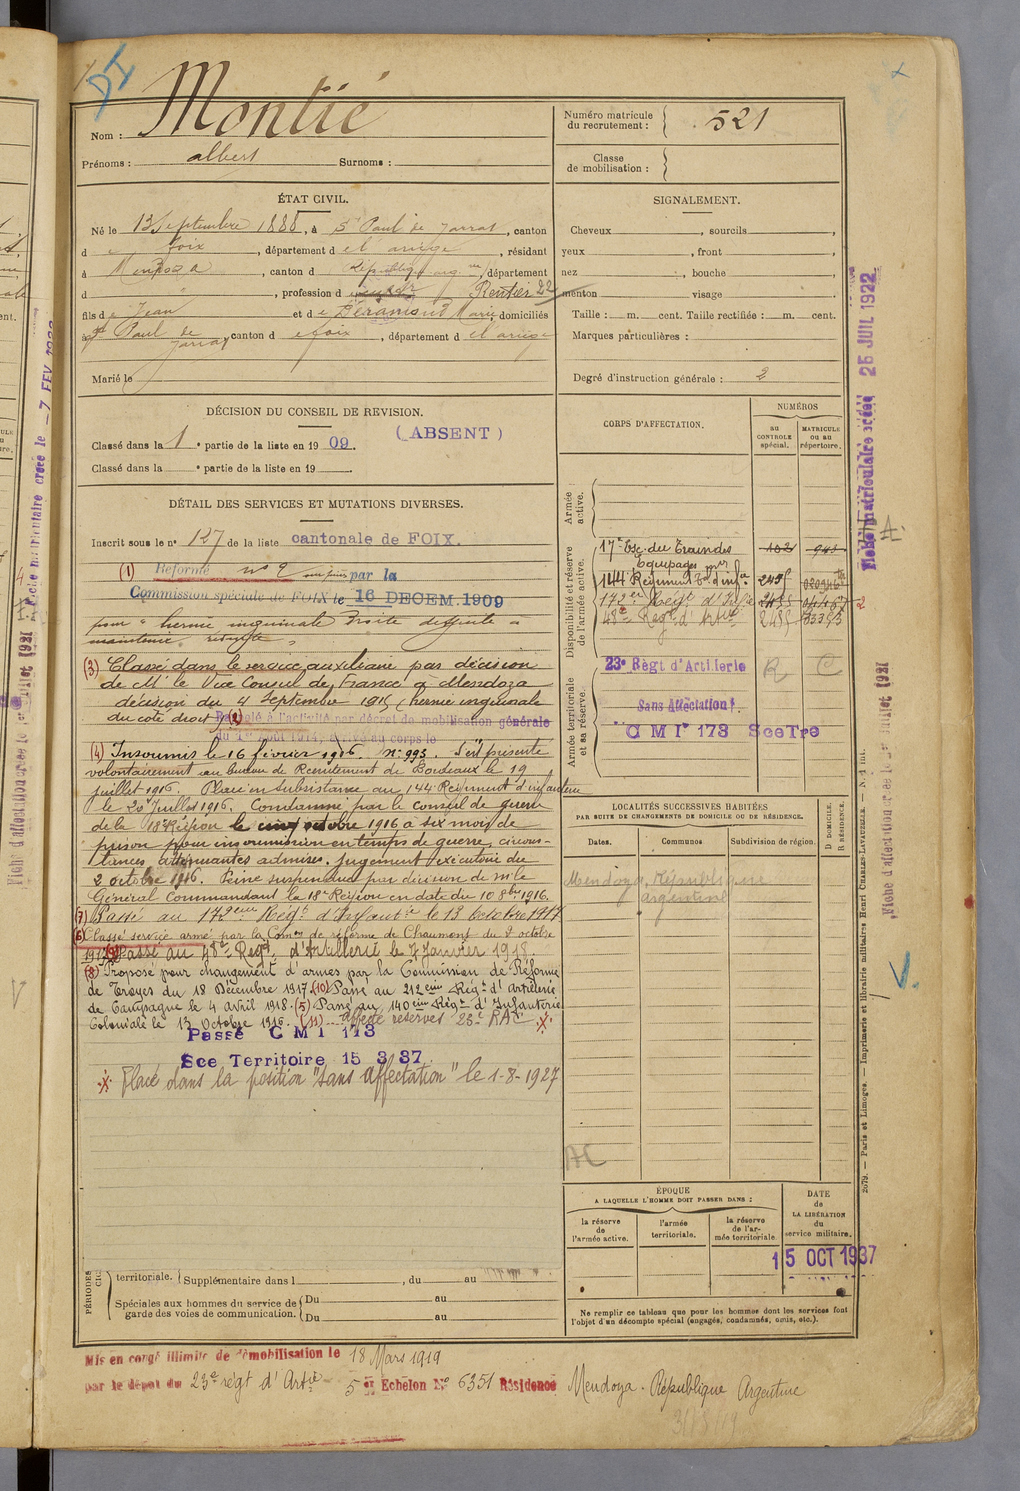 DI
Nom : Montié
Prénoms : albert Surnoms :
Numéro matricule du recrutement : 521
Classe de mobilisation :
ÉTAT CIVIL.
Né le 13 Septembre 1888, à St Paul de Jarrat, canton
d e foix, département d e l'ariège, résidant
à Mendoza, canton d République arg.ne, département
d " , profession d Rentier 22
fils de Jean et de Déramond Marie, domiciliés
à St Paul de Jarrat canton d e foix, département d el'ariège
Marié le
SIGNALEMENT.
Cheveux , sourcils ,
yeux , front ,
nez , bouche ,
menton visage
Taille : m. cent. Taille rectifiée : m. cent.
Marques particulières :
Degré d'instruction générale : 2
DÉCISION DU CONSEIL DE REVISION.
Classé dans la 1e partie de la liste en 1909. (ABSENT)
Classé dans la e partie de la liste en 19 .
DÉTAIL DES SERVICES ET MUTATIONS DIVERSES.
Inscrit sous le n° 127 de la liste cantonale de FOIX.
(1) Réformé n° 2 par la
Commission spéciale de FOIX le 16 DECEM. 1909
pour " hernie inguinale droite
(3) Classé dans le service auxiliaire par décision
de Mr le Vice Consul de France à Mendoza
décision du 4 Septembre 1915 (hernie inguinale
du côté droit) (2) Rappelé à l'activité par décret de mobilisation générale
du 1er Août 1914, arrivé au corps le
(4) Insoumis le 16 février 1916. N° 993. S'est présenté
volontairement au bureau de Recrutement de Bordeaux le 19
juillet 1916. Placé en subsistance au 144 Régiment d'infanterie
le 20 Juillet 1916. Condamné par le conseil de guerre
de la 18e Région le cinq octobre 1916 à six mois de
prison pour insoumission en temps de guerre, circons-
tances atténuantes admises. Jugement exécutoire du
2 octobre 1916. Peine suspendue par décision de Mr le
Général Commandant la 18e Région en date du 10 8bre 1916.
(7) Passé au 172eme Regt d'Infanterie le 13 Octobre 1917
(6) Classé service armé par la Comon de réforme de Chaumont du 2 octobre
1917 (9) Passé au 48e Regt d'Artillerie le 7 Janvier 1918
(8) Proposé pour changement d'armes par la Commission de Réforme
de Troyes du 18 Décembre 1917. (10) Passé au 212eme Regt d'Artillerie
de Campagne le 4 Avril 1918. (5) Passé au 140eme Régt d'Infanterie
Coloniale le 13 Octobre 1916. (11) affecté réserves 23e RAC
Passé C M I 173
Sce Territoire 15 3 37
Placé dans la position "sans affectation" le 1-8-1927
CORPS D'AFFECTATION.
NUMÉROS
AU CONTROLE spécial.
MATRICULE ou au répertoire.
Armée active.
Disponibilité et réserve de l'armée active.
17e Esc. du Train des
Equipages mres
144e Régiment d'infie
172er Régt d'Infie
48e Regt d'Artie
Armée territoriale et sa réserve.
23e Règt d'Artillerie
Sans Affectation
C M Ie 173 Sce Tre
LOCALITÉS SUCCESSIVES HABITÉES
PAR SUITE DE CHANGEMENTS DE DOMICILE OU DE RÉSIDENCE.
Dates. Communes Subdivision de région. D DOMICILE. R RÉSIDENCE.
Mendoza, République
argentine
ÉPOQUE
A LAQUELLE L'HOMME DOIT PASSER DANS :
la réserve de l'armée active.
l'armée territoriale.
la réserve de l'armée territoriale
DATE de LA LIBÉRATION du service militaire.
15 OCT 1937
PÉRIODES
territoriale. Supplémentaire dans l , du au
Spéciales aux hommes du service de garde des voies de communication.
Du au
Du au
Ne remplir ce tableau que pour les hommes dont les services font
l'objet d'un décompte spécial (engagés, condamnés, omis, etc.).
Mis en congé illimité de démobilisation le 18 Mars 1919
par le dépôt du 23e régt d'Artie 5 er Echelon N° 6351 Résidence Mendoza. République Argentine
Fiche matriculaire créée 25 JUIL 1922
2679. — Paris et Limoges. — Imprimerie et librairie militaires Henri CHARLES-LAVAUZELLE.